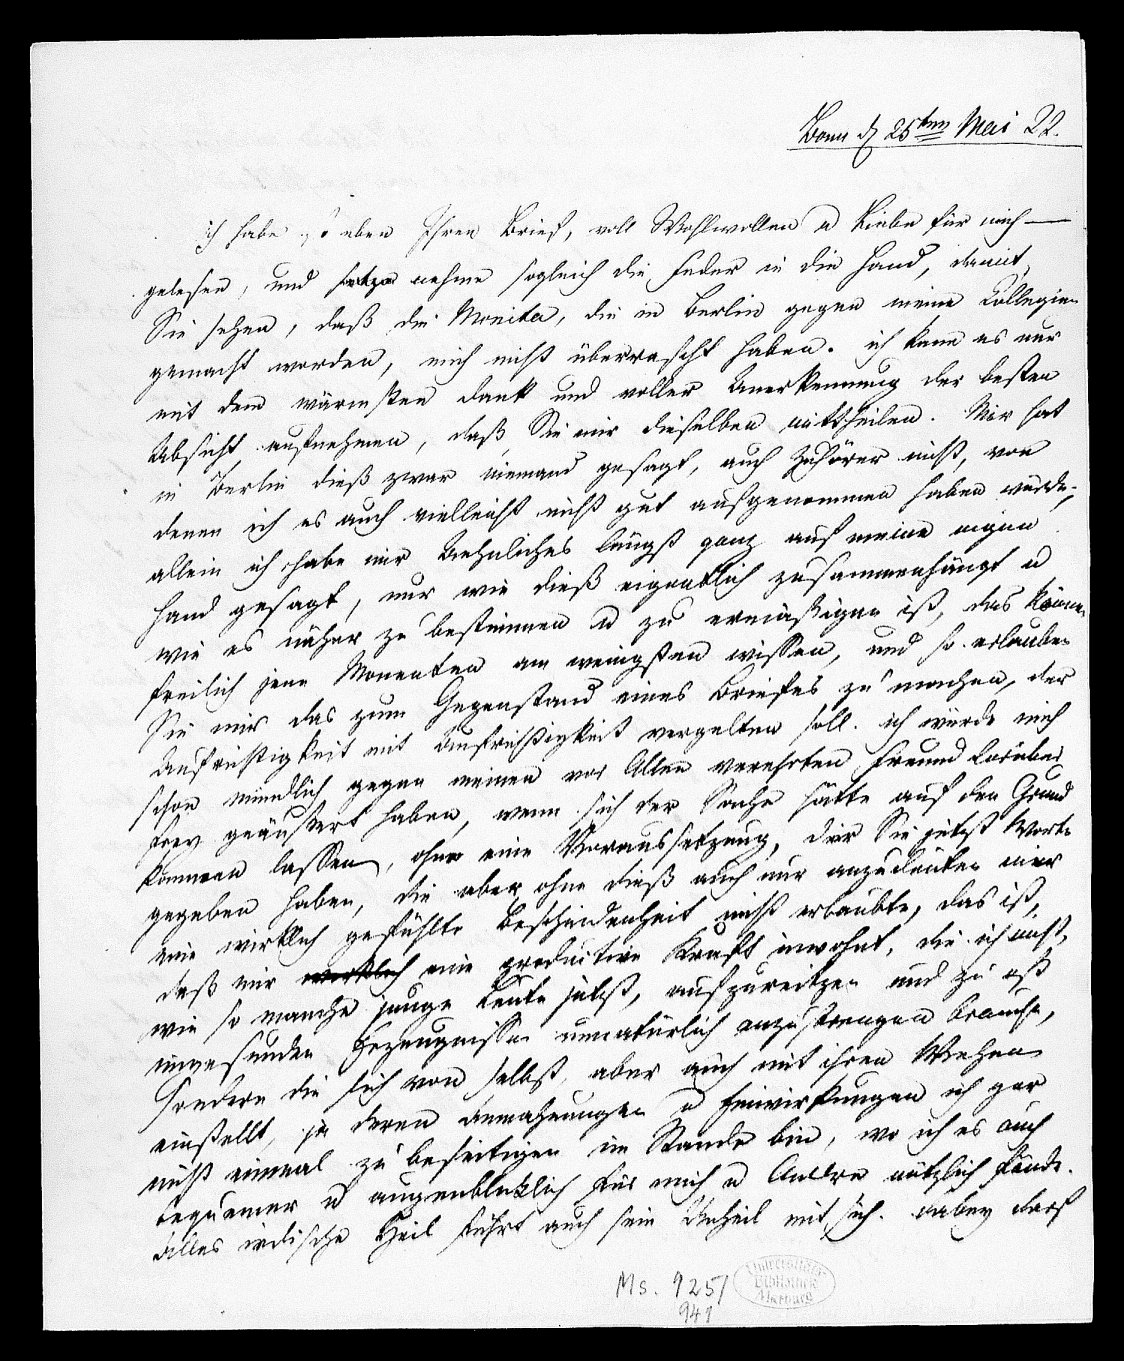 Bonn d 25ten Mai 22.
ich habe so eben Ihren Brief, voll Wohlwollen u Liebe für mich —
gelesen, und nehme sogleich die Feder in die Hand, damit
Sie sehen, daß die Monita, die in Berlin gegen meine Collegien
gemacht worden, mich nicht überrascht haben. ich kann es nur
mit dem wärmsten Dank und voller Anerkennung der besten
Absicht aufnehmen, daß Sie mir dieselben mittheilen. Mir hat
in Berlin dieß zwar niemand gesagt, auch Zuhörer nicht, von
denen ich es auch vielleicht nicht gut aufgenommen haben würde,
allein ich habe mir Aehnliches längst ganz auf meine eigene
Hand gesagt, nur wie dieß eigentlich zusammenhängt u
wie es näher zu bestimmen u zu ermäßigen ist, das können
freilich jene Monenten am wenigsten wissen, und so erlauben
Sie mir das zum Gegenstand eines Briefes zu machen, der
Aufrichtigkeit mit Aufrichtigkeit vergelten soll. ich würde mich
schon mündlich gegen meinen vor Allen verehrten Freund darüber
frey geäußert haben, wenn sich der Sache hätte auf den Grund
kommen lassen, ohne eine Voraussetzung, der Sie jetzt Worte
gegeben haben, die aber ohne dieß auch nur anzudeuten mir
eine wirklich gefühlte Bescheidenheit nicht erlaubte, das ist,
daß mir wirklich eine productive Kraft inwohnt, die ich nicht,
wie so manche junge Leute jetzt, aufzureitzen und zu oft
ungesunden Erzeugnissen unnatürlich anzustrengen brauche,
sondern die sich von selbst, aber auch mit ihren Wehen
einstellt, ja deren Anmahnungen u Einwirkungen ich gar
nicht einmal zu beseitigen im Stande bin, wo ich es auch
bequemer u augenblicklich für mich u Andre nützlich fände.
Alles irdische Heil führt auch sein Unheil mit sich. dabey darf
Ms. 925/
941
Universitäts
Bibliothek
Marburg